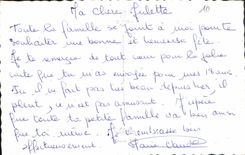 Ma Chère Juliette 10
Toute la famille se joint à moi pour te
souhaiter une bonne et heureuse fête.
Je te remercie de tout cœur pour la jolie
carte que tu m'as envoyée pour mes 18 ans.
Ici il ne fait pas très beau depuis hier, il
pleut, ce n'est pas amusant. J'espère
que toute ta petite famille va bien ainsi
que toi même. Je t'embrasse bien
affectueusement.
Marie Claude